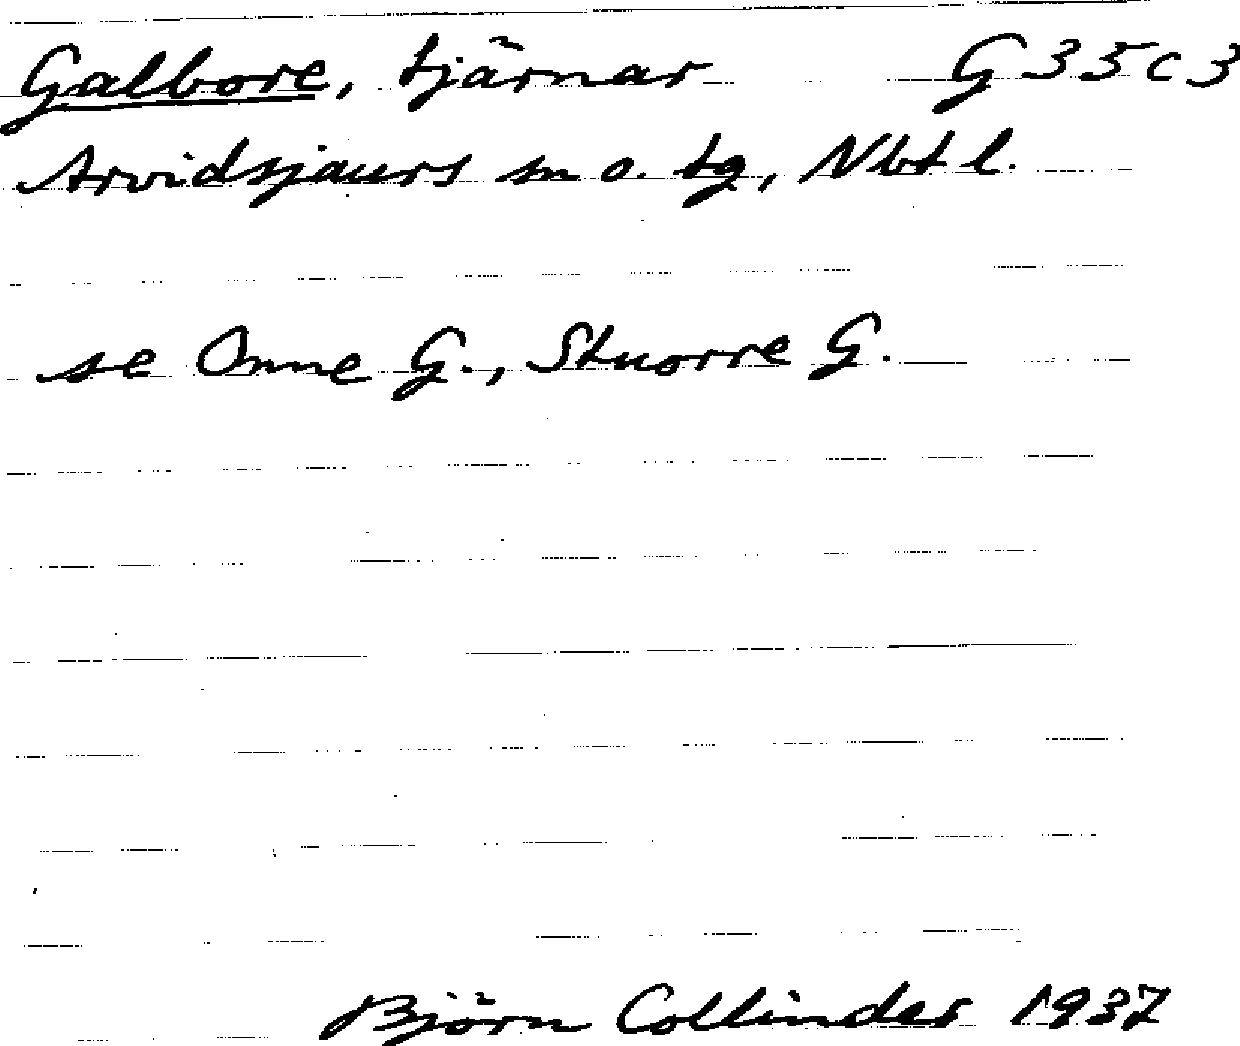 Galbore, tjärnar G35c3
Arvidsjaurs sn o. tg, Nbt l.
se Onne G., Stuorre G.
Björn Collinder 1937